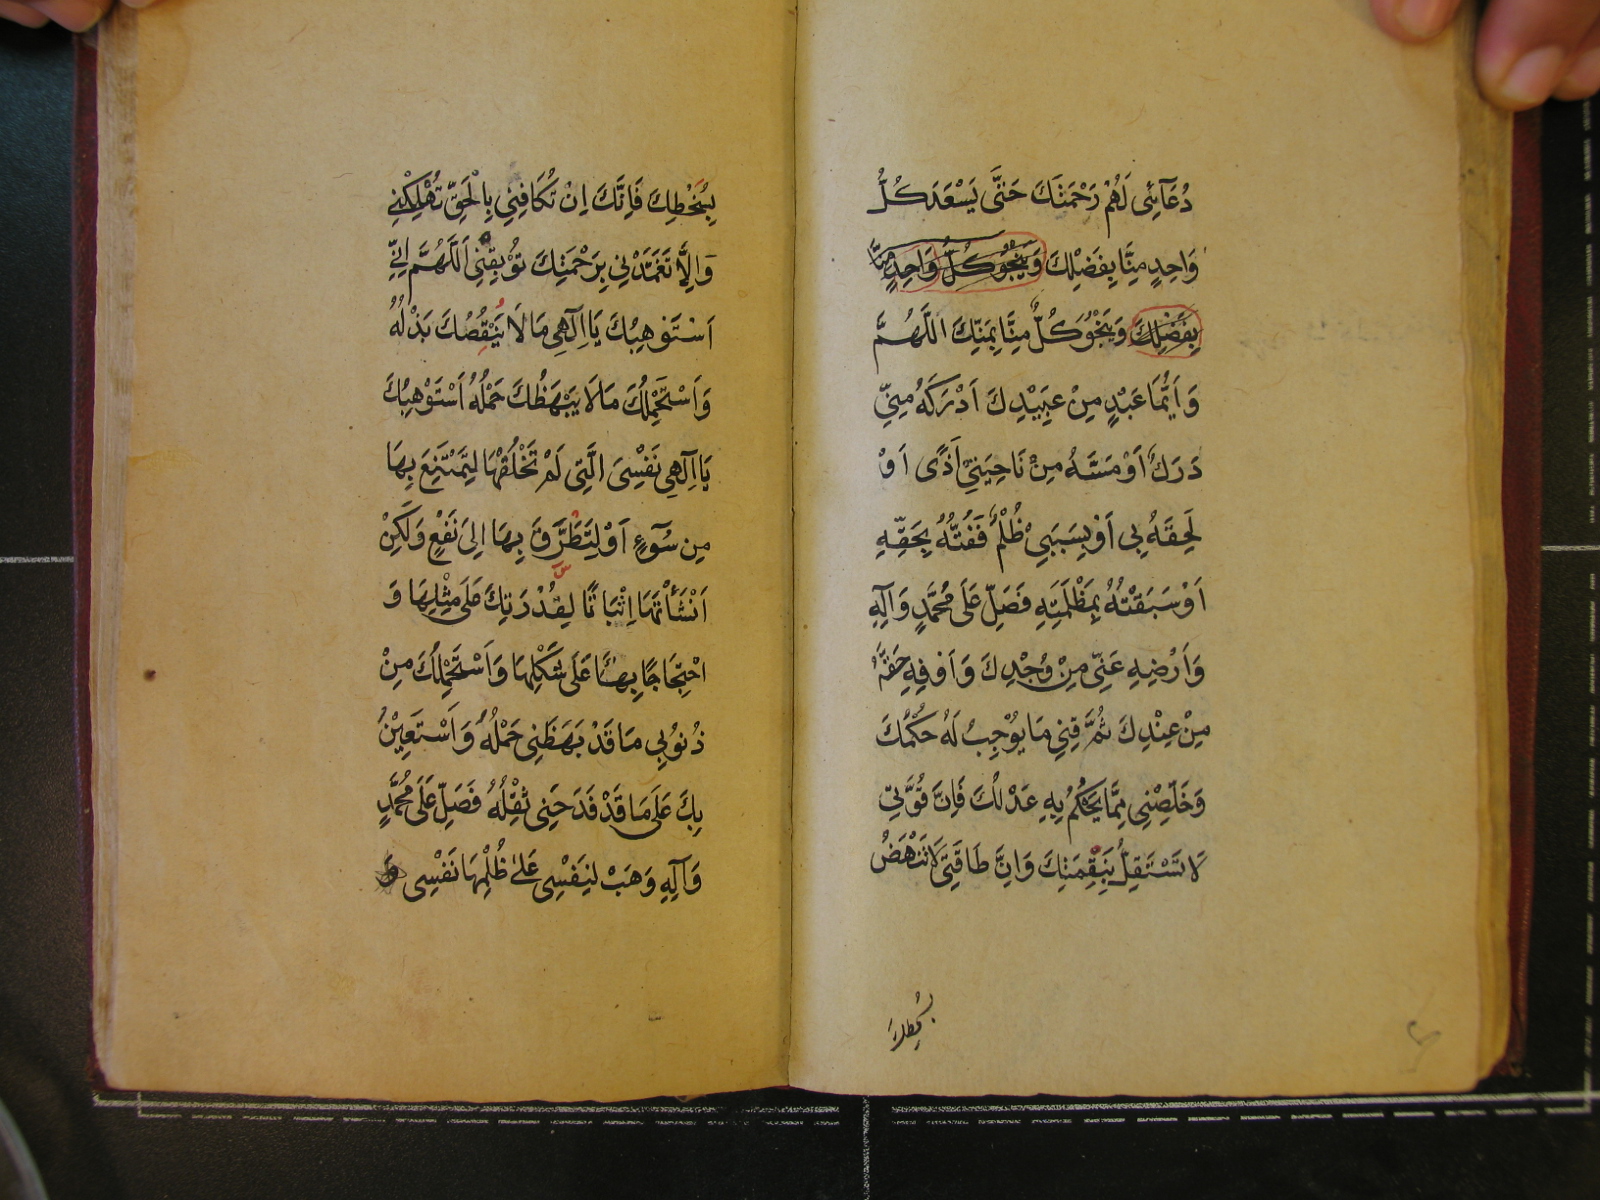 دُعَآئِى لَهُمْ رَحْمَتَكَ حَتَّى يَسْعَدَ كُلُّ
وَاحِدٍ مِنَّا بِفَضْلِكَ وَيَنْجُوَ كُلُّ وَاحِدٍ مِنَّا
بِفَضْلِكَ وَيَنْجُوَ كُلٌّ مِنَّا بِمَنِّكَ اللَّهُمَّ
وَاَيُّمَا عَبْدٍ مِنْ عَبِيْدِكَ اَدْرَكَهُ مِنِّي
دَرَكٌ اَوْ مَسَّهُ مِنْ نَاحِيَتِيْ اَذًى اَوْ
لَحِقَهُ بِى اَوْ بِسَبَبِيْ ظُلْمٌ فَفُتُّهُ بِحَقِّهِ
اَوْ سَبَقْتُهُ بِمَظْلَمَتِهِ فَصَلِّ عَلَى مُحَمَّدٍ وَآلِهِ
وَاَرْضِهِ عَنِّى مِنْ وُجْدِكَ وَاَوْفِهِ حَقَّهُ
مِنْ عِنْدِكَ ثُمَّ قِنِى مَا يُوْجِبُ لَهُ حُكْمُكَ
وَخَلِّصْنِى مِمَّا يَحْكُمُ بِهِ عَدْلُكَ فَاِنَّ قُوَّتِى
لَا تَسْتَقِلُّ بِنَقِمَتِكَ وَاِنَّ طَاقَتِى لَا تَنْهَضُ
بِسُخْطِكَ
بِسُخْطِكَ فَاِنَّكَ اِنْ تُكَافِنِى بِالْحَقِّ تُهْلِكْنِى
وَاِلَّا تَغَمَّدْنِى بِرَحْمَتِكَ تُوْبِقْنِى اَللَّهُمَّ اِنِّى
اَسْتَوْهِبُكَ يَا اِلَهِى مَا لَا يَنْقُصُكَ بَذْلُهُ
وَاَسْتَحْمِلُكَ مَا لَا يَبْهَظُكَ حَمْلُهُ اَسْتَوْهِبُكَ
يَا اِلَهِى نَفْسِىَ الَّتِى لَمْ تَخْلُقْهَا لِيَمْتَنِعَ بِهَا
مِن سُوٓءٍ اَوْ لِتَطَرَّقَ بِهَا اِلَى نَفْعٍ وَلَكِنْ
اَنْشَأْتَهَا اِثْبَاتًا لِقُدْرَتِكَ عَلَى مِثْلِهَا وَ
احْتِجَاجًا بِهَا عَلَى شَكْلِهَا وَاَسْتَحْمِلُكَ مِنْ
ذُنُوْبِى مَا قَدْ بَهَظَنِى حَمْلُهُ وَاَسْتَعِيْنُ
بِكَ عَلَى مَا قَدْ فَدَحَنِى ثِقْلُهُ فَصَلِّ عَلَى مُحَمَّدٍ
وَآلِهِ وَهَبْ لِنَفْسِى عَلَى ظُلْمِهَا نَفْسِى وَ